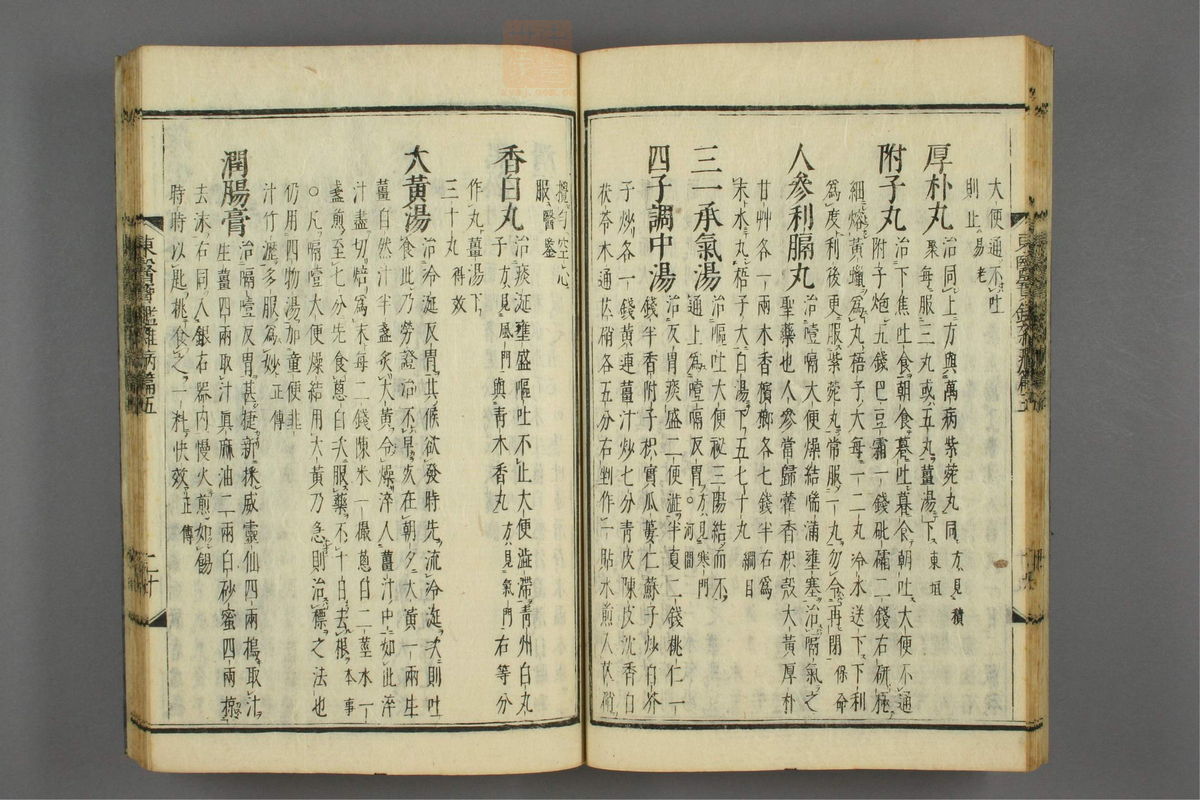 大便通不吐
則止易老
厚朴丸治同上方與萬病紫菀丸同方見積
聚每服三丸或五丸薑湯下東垣
附子丸治下焦吐食朝食暮吐暮食朝吐大便不通
附子炮五錢巴豆霜一錢砒礵二錢右硏極
細熔黃蠟爲丸梧子大每一二丸冷水送下下利
爲度利後更服紫菀丸常服一丸勿令再閉保命
人參利膈丸治噎膈大便燥結喘滿壅塞治膈氣之
聖藥也人參當歸藿香枳殼大黃厚朴
甘艸各一兩木香檳榔各七錢半右爲
末水丸梧子大白湯下五七十丸綱目
三一承氣湯治嘔吐大便祕三陽結而不
通上爲噎膈反胃方見寒門○河間
四子調中湯治反胃痰盛二便澁半夏二錢桃仁一
錢半香附子枳實瓜蔞仁蘇子炒白芥
子炒各一錢黃連薑汁炒七分靑皮陳皮沈香白
茯苓木通芒硝各五分右剉作一貼水煎入芒硝
攪勻空心
服醫鑒
香白丸治痰涎壅盛嘔吐不止大便澁滯靑州白丸
子方見風門與靑木香丸方見氣門右等分
作丸薑湯下
三十丸得效
大黃湯治冷涎反胃其候欲發時先流冷涎次則吐
食此乃勞證治不早死在朝夕大黃一兩生
薑自然汁半盞炙大黃令燥淬入薑汁中如此淬
汁盡切焙爲末每二錢陳米一撮蔥白二莖水一
盞煎至七分先食蔥白次服藥不十日去根本事
○凡膈噎大便燥結用大黃乃急則治標之法也
仍用四物湯加童便韭
汁竹瀝多服爲妙正傳
潤腸膏治膈噎反胃甚捷新採威靈仙四兩搗取汁
生薑四兩取汁眞麻油二兩白砂蜜四兩掠
去沫右同入銀石器內慢火煎如餳
時時以匙桃食之一料快效正傳
東醫寶鑑雜病篇五